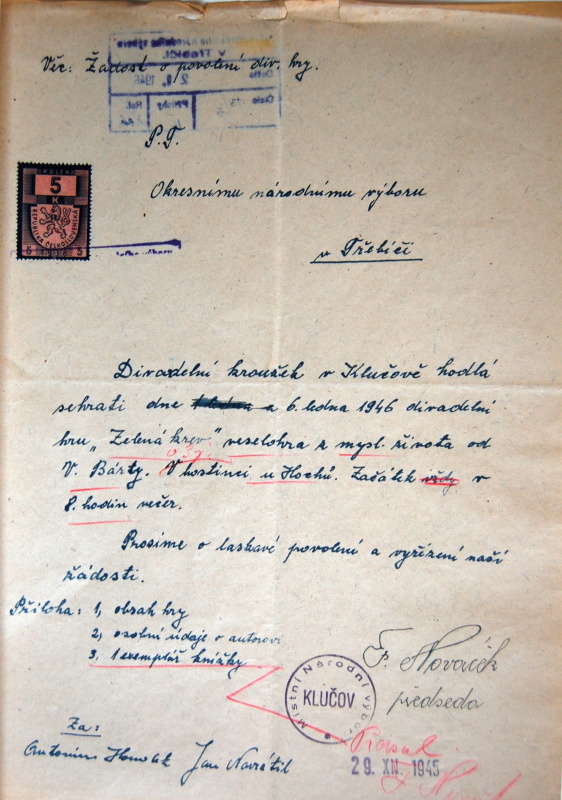 Věc: Žádost o povolení div. hry.
P.T.
KOLEK
5
K
REPUBLIKA ČESKOSLOVENSKÁ
Okresnímu národnímu výboru
v Třebíči
Divadelní kroužek v Klučově hodlá
sehrati dne a 6. ledna 1946 divadelní
hru „Zelená krev" veselohra z mysl. života od
V. Bárty. V hostinci u Hochů. Začátek vždy v
8. hodin večer.
Prosíme o laskavé povolení a vyřízení naší
žádosti.
Příloha: 1, obsah hry
2, osobní údaje o autorovi
3, 1 exemplář knížky
F. Nováček
předseda
Místní Národní výbor
KLUČOV
Za:
Antonín Jan Navrátil
29. XII. 1945